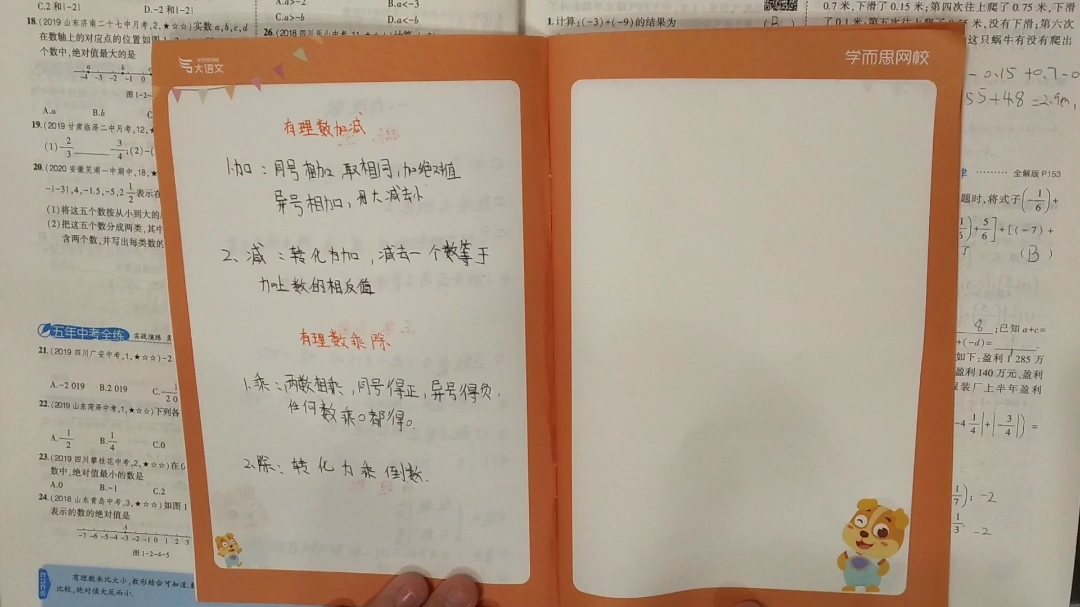 C.2和|-2|
D.-2和|-2|
18.(2019山东济南二十七中月考,2,★☆☆)实数a,b,c,d
在数轴上的对应点的位置如图
个数中,绝对值最大的是
-4 -3 -2 -1 0
图1-2-
A.a
B.b
19.(2019甘肃临泽二中月考,12,
20.(2020安徽芜湖一中期中,18,
-|-3|,4,-1.5,-5,2 1/2表示在
(1)将这五个数按从小到大的
(2)把这五个数分成两类,其中
含两个数,并写出每类数的
五年中考全练
实战演练
21.(2019四川广安中考,1,★☆☆)-2
A.-2 019
B.2 019
22.(2019山东菏泽中考,1,★☆☆)下列各
A.-1/2
B.1/4
C.0
23.(2019四川攀枝花中考,2,★☆☆)在0
数中,绝对值最小的数是
A.0
B.-1
C.2
24.(2018山东青岛中考,3,★☆☆)如图1
表示的数的绝对值是
-7 -6 -5 -4 -3 -2 -1 0 1 2 3
图1-2-4-5
有理数来比大小,数形结合可知道.
比较,绝对值大反而小.
A.a>-2
B.a<-3
C.a>-b
D.a<-b
1.计算:(-3)+(-9)的结果为
大语文
有理数加减
1.加:同号相加取相同,加绝对值
异号相加,用大减去小
2、减:转化为加,减去一个数等于
加上数的相反值
有理数乘除
1.乘:两数相乘,同号得正,异号得负,
任何数乘0都得0
2.除:转化为乘倒数.
学而思网校
0.7米,下滑了0.15米;第四次往上爬了0.75米,下滑
米,没有下滑;第六次
这只蜗牛有没有爬出
全解版P153
题时,将式子(-1/6)+
+5/6]+[(-7)+
(B)
8
;已知a+c=
+(-d)=
如下:盈利1 285万
盈利140万元、盈利
服装厂上半年盈利
-4 1/4|+|-3/4|)=
-2
-2